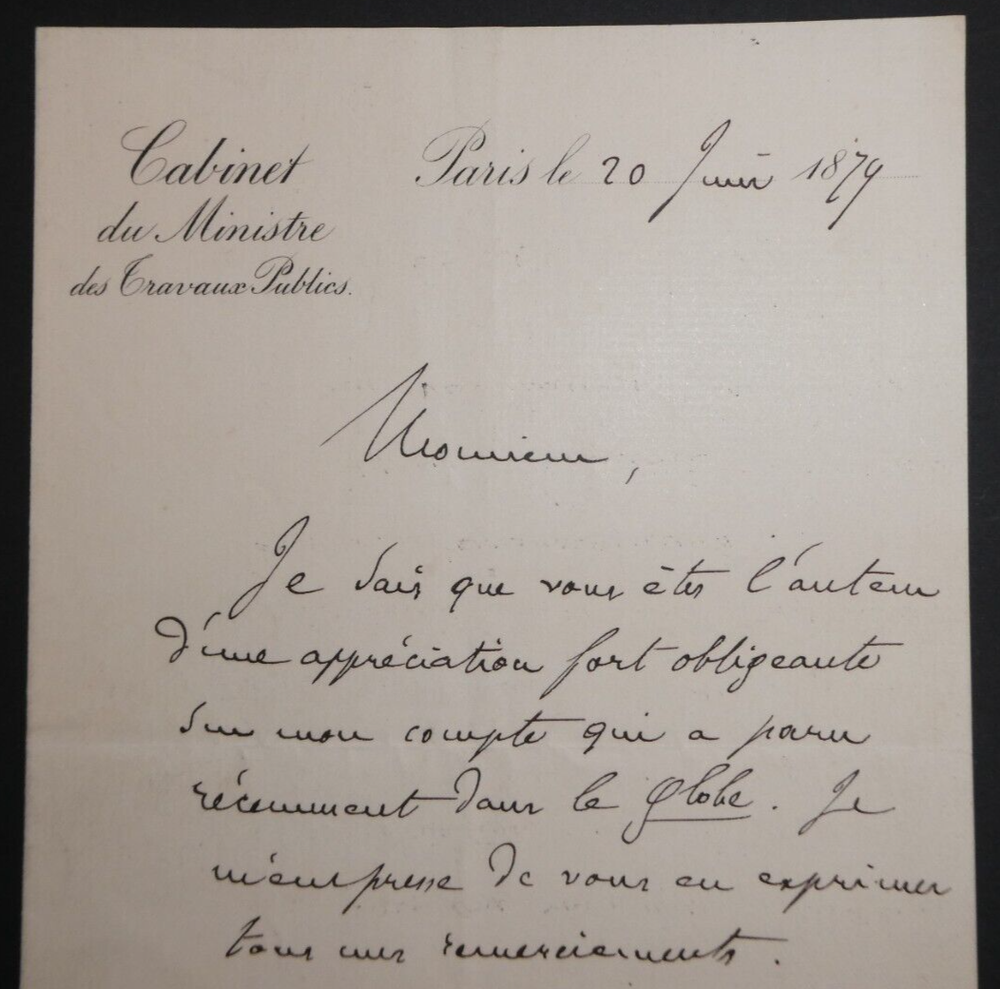 Cabinet
du Ministre
des Travaux Publics.
Paris le 20 Juin 1879
Monsieur,
Je sais que vous êtes l'auteur
d'une appréciation fort obligeante
sur mon compte qui a paru
récemment dans le Globe. Je
m'empresse de vous en exprimer
tous mes remerciements.